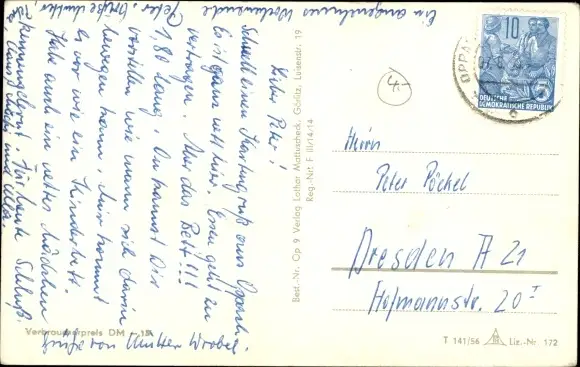 Lieber Peter!
Schnell einen Kartengruß aus Oppach.
Es ist ganz nett hier. Essen geht zu
ertragen. Aber das Bett!!!
1,80 lang. Du kannst Dir
vorstellen wie man sich darin
bewegen kann. Mir kommt
es vor wie ein Kinderbett.
Habe auch ein nettes Mädchen
kennengelernt. Für heute Schluß.
Ein angenehmes Wochenende
Grüße von Mutter Wrobel
Best.-Nr. Op 9 Verlag Lothar Mattuscheck, Görlitz, Luisenstr. 19
Reg.-Nr. F III/14/14
4,-
10
5
DEUTSCHE
DEMOKRATISCHE REPUBLIK
OPPA
Herrn
Peter Pöckel
Dresden A 21
Hofmannstr. 20 I
Verbraucherpreis DM -,15
T 141/56 Liz.-Nr. 172